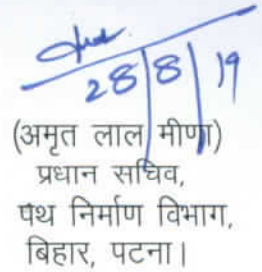 28/8/19
(अमृत लाल मीणा)
प्रधान सचिव,
पथ निर्माण विभाग,
बिहार, पटना।